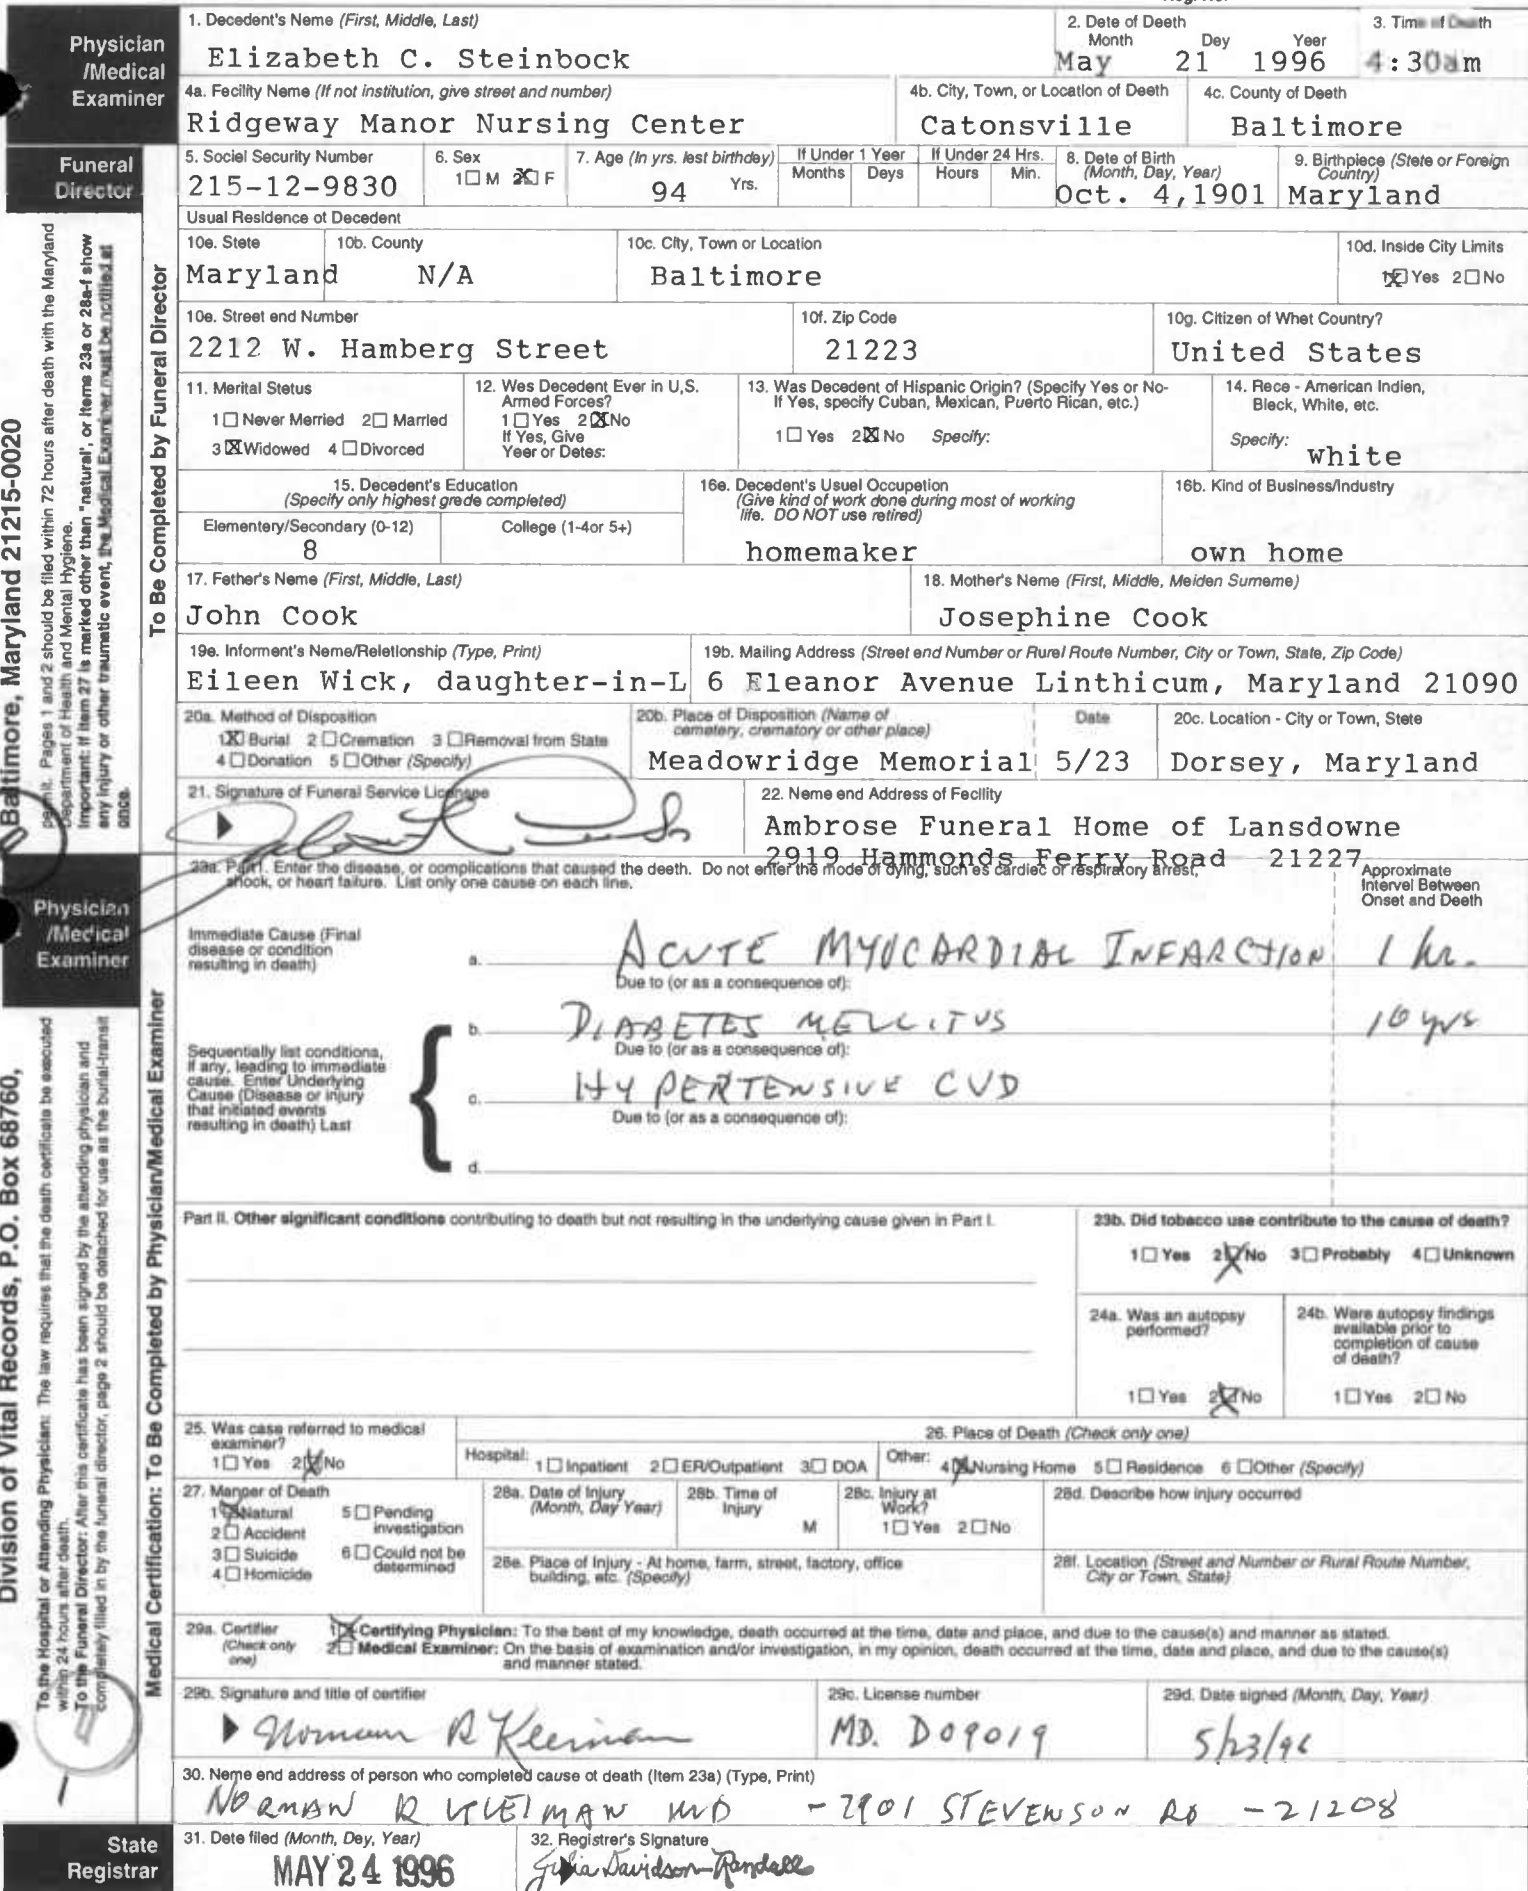 Physician
/Medical
Examiner
1. Decedent's Name (First, Middle, Last)
Elizabeth C. Steinbock
2. Date of Deeth
Month Dey Yeer
May 21 1996
3. Time of Death
4:30am
4a. Fecility Name (If not institution, give street and number)
Ridgeway Manor Nursing Center
4b. City, Town, or Location of Deeth
Catonsville
4c. County of Deeth
Baltimore
Funeral
Director
5. Sociel Security Number
215-12-9830
6. Sex
1☐ M 2☒ F
7. Age (In yrs. lest birthdey)
94 Yrs.
If Under 1 Yeer
Months Deys
If Under 24 Hrs.
Hours Min.
8. Dete of Birth
(Month, Day, Year)
Oct. 4,1901
9. Birthpiece (Stete or Foreign
Country)
Maryland
Usual Residence ot Decedent
10e. Stete
Maryland
10b. County
N/A
10c. City, Town or Location
Baltimore
10d. Inside City Limits
1☒ Yes 2☐ No
10e. Street end Number
2212 W. Hamberg Street
10f. Zip Code
21223
10g. Citizen of Whet Country?
United States
11. Meritel Stetus
1☐ Never Merried 2☐ Married
3☒ Widowed 4☐ Divorced
12. Wes Decedent Ever in U.S.
Armed Forces?
1☐ Yes 2☒ No
If Yes, Give
Yeer or Detes:
13. Was Decedent of Hispanic Origin? (Specify Yes or No-
If Yes, specify Cuban, Mexican, Puerto Rican, etc.)
1☐ Yes 2☒ No Specify:
14. Rece - American Indien,
Bleck, White, etc.
Specify:
white
15. Decedent's Education
(Specify only highest grede completed)
Elementery/Secondary (0-12)
8
College (1-4or 5+)
16e. Decedent's Usuel Occupetion
(Give kind of work done during most of working
life. DO NOT use retired)
homemaker
16b. Kind of Business/Industry
own home
17. Fether's Neme (First, Middle, Last)
John Cook
18. Mother's Neme (First, Middle, Meiden Surneme)
Josephine Cook
19e. Informent's Neme/Reletlonship (Type, Print)
Eileen Wick, daughter-in-L
19b. Mailing Address (Street end Number or Rurel Route Number, City or Town, State, Zip Code)
6 Eleanor Avenue Linthicum, Maryland 21090
20a. Method of Disposition
1☒ Burial 2☐ Cremation 3☐ Removal from State
4☐ Donation 5☐ Other (Specify)
20b. Place of Disposition (Name of
cemetery, crematory or other place)
Meadowridge Memorial
Date
5/23
20c. Location - City or Town, Stete
Dorsey, Maryland
21. Signature of Funeral Service Licensee
22. Neme end Address of Fecility
Ambrose Funeral Home of Lansdowne
2919 Hammonds Ferry Road 21227
23a. Part I. Enter the disease, or complications that caused the deeth. Do not enter the mode of dying, such es cardiec or respiratory arrest,
shock, or heart failure. List only one cause on each line.
Approximate
Intervel Between
Onset and Deeth
Physician
/Medical
Examiner
Immediate Cause (Final
disease or condition
resulting in death)
a. ACUTE MYOCARDIAL INFARCTION 1 hr.
Due to (or as a consequence of):
b. DIABETES MELLITUS 10 yrs
Due to (or as a consequence of):
c. HYPERTENSIVE CVD
Due to (or as a consequence of):
d.
Sequentially list conditions,
if any, leading to immediate
cause. Enter Underlying
Cause (Disease or injury
that initiated events
resulting in death) Last
Part II. Other significant conditions contributing to death but not resulting in the underlying cause given in Part I.
23b. Did tobacco use contribute to the cause of death?
1☐ Yes 2☒ No 3☐ Probably 4☐ Unknown
24a. Was an autopsy
performed?
1☐ Yes 2☒ No
24b. Were autopsy findings
available prior to
completion of cause
of death?
1☐ Yes 2☐ No
25. Was case referred to medical
examiner?
1☐ Yes 2☒ No
26. Place of Death (Check only one)
Hospital: 1☐ Inpatient 2☐ ER/Outpatient 3☐ DOA
Other: 4☒ Nursing Home 5☐ Residence 6☐ Other (Specify)
27. Manner of Death
1☒ Natural
2☐ Accident
3☐ Suicide
4☐ Homicide
5☐ Pending
investigation
6☐ Could not be
determined
28a. Date of Injury
(Month, Day Year)
28b. Time of
Injury
M
28c. Injury at
Work?
1☐ Yes 2☐ No
28d. Describe how injury occurred
28e. Place of Injury - At home, farm, street, factory, office
building, etc. (Specify)
28f. Location (Street and Number or Rural Route Number,
City or Town, State)
29a. Certifier
(Check only
one)
1☒ Certifying Physician: To the best of my knowledge, death occurred at the time, date and place, and due to the cause(s) and manner as stated.
2☐ Medical Examiner: On the basis of examination and/or investigation, in my opinion, death occurred at the time, date and place, and due to the cause(s)
and manner stated.
29b. Signature and title of certifier
Norman R Kleiman
29c. License number
MD. D09019
29d. Date signed (Month, Day, Year)
5/23/96
30. Neme end address of person who completed cause ot death (Item 23a) (Type, Print)
NORMAN R KLEIMAN MD - 2901 STEVENSON RD - 21208
State
Registrar
31. Dete filed (Month, Dey, Year)
MAY 24 1996
32. Registrer's Signature
Julia Davidson-Randall
To Be Completed by Funeral Director
Medical Certification: To Be Completed by Physician/Medical Examiner
Baltimore, Maryland 21215-0020
permit. Pages 1 and 2 should be filed within 72 hours after death with the Maryland
Department of Health and Mental Hygiene.
Important: If item 27 is marked other than "natural", or items 23a or 28a-f show
any injury or other traumatic event, the Medical Examiner must be notified at
once.
Division of Vital Records, P.O. Box 68760,
To the Hospital or Attending Physician: The law requires that the death certificate be executed
within 24 hours after death.
To the Funeral Director: After this certificate has been signed by the attending physician and
completely filled in by the funeral director, page 2 should be detached for use as the burial-transit